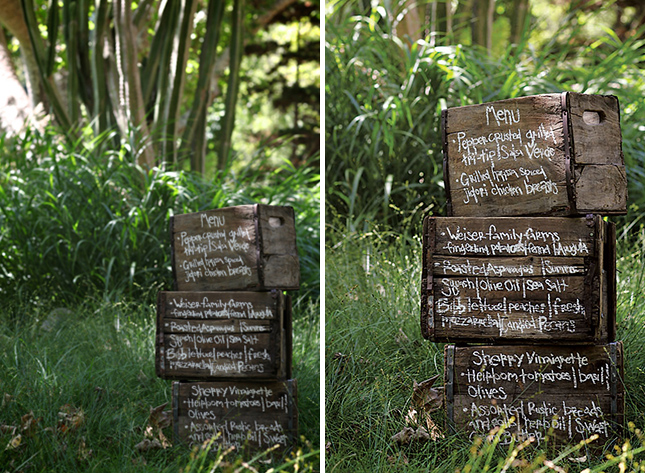 Menu
Pepper crusted grilled
tri-tip | Salsa Verde
• Grilled
jidori chicken breasts
• Weiser family farms
fingerling potatoes and Arugula
• Roasted Asparagus |
Olive Oil | Sea Salt
Bibb lettuce | peaches | fresh
mozzarella | candied Pecans
Sherry Vinaigrette
• Heirloom tomatoes | basil |
Olives
• Assorted Rustic breads
Menu
• Pepper crusted grilled
tri-tip | Salsa Verde
• Grilled
jidori chicken breasts
• Weiser family farms
fingerling potatoes and | Arugula
• Roasted Asparagus |
Olive Oil | Sea Salt
Bibb lettuce | peaches | fresh
mozzarella | candied Pecans
Sherry Vinaigrette
• Heirloom tomatoes | basil |
Olives
• Assorted Rustic breads |
and herb oil | Sweet